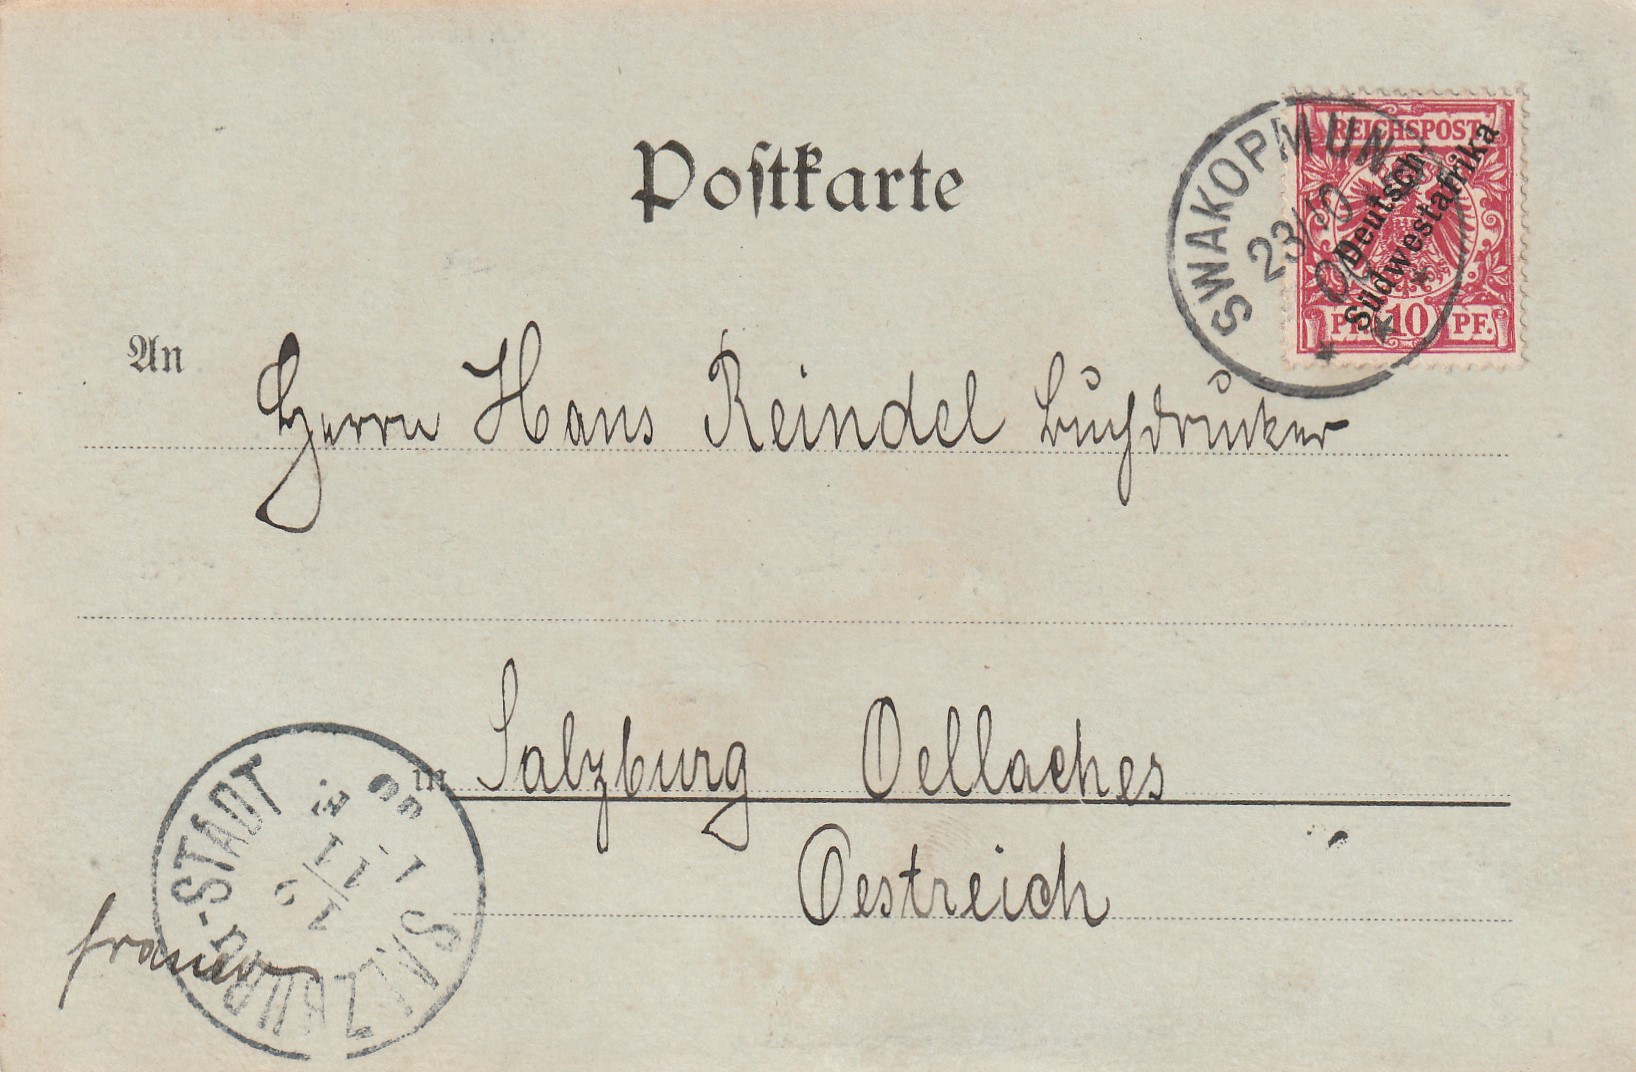 Postkarte
REICHSPOST
Deutsch-
Südwestafrika
10 PF.
SWAKOPMUND
23/10
An
Herrn Hans Reindel Buchdrucker
in Salzburg Oellaches
Oestreich
franco
SALZBURG-STADT
11